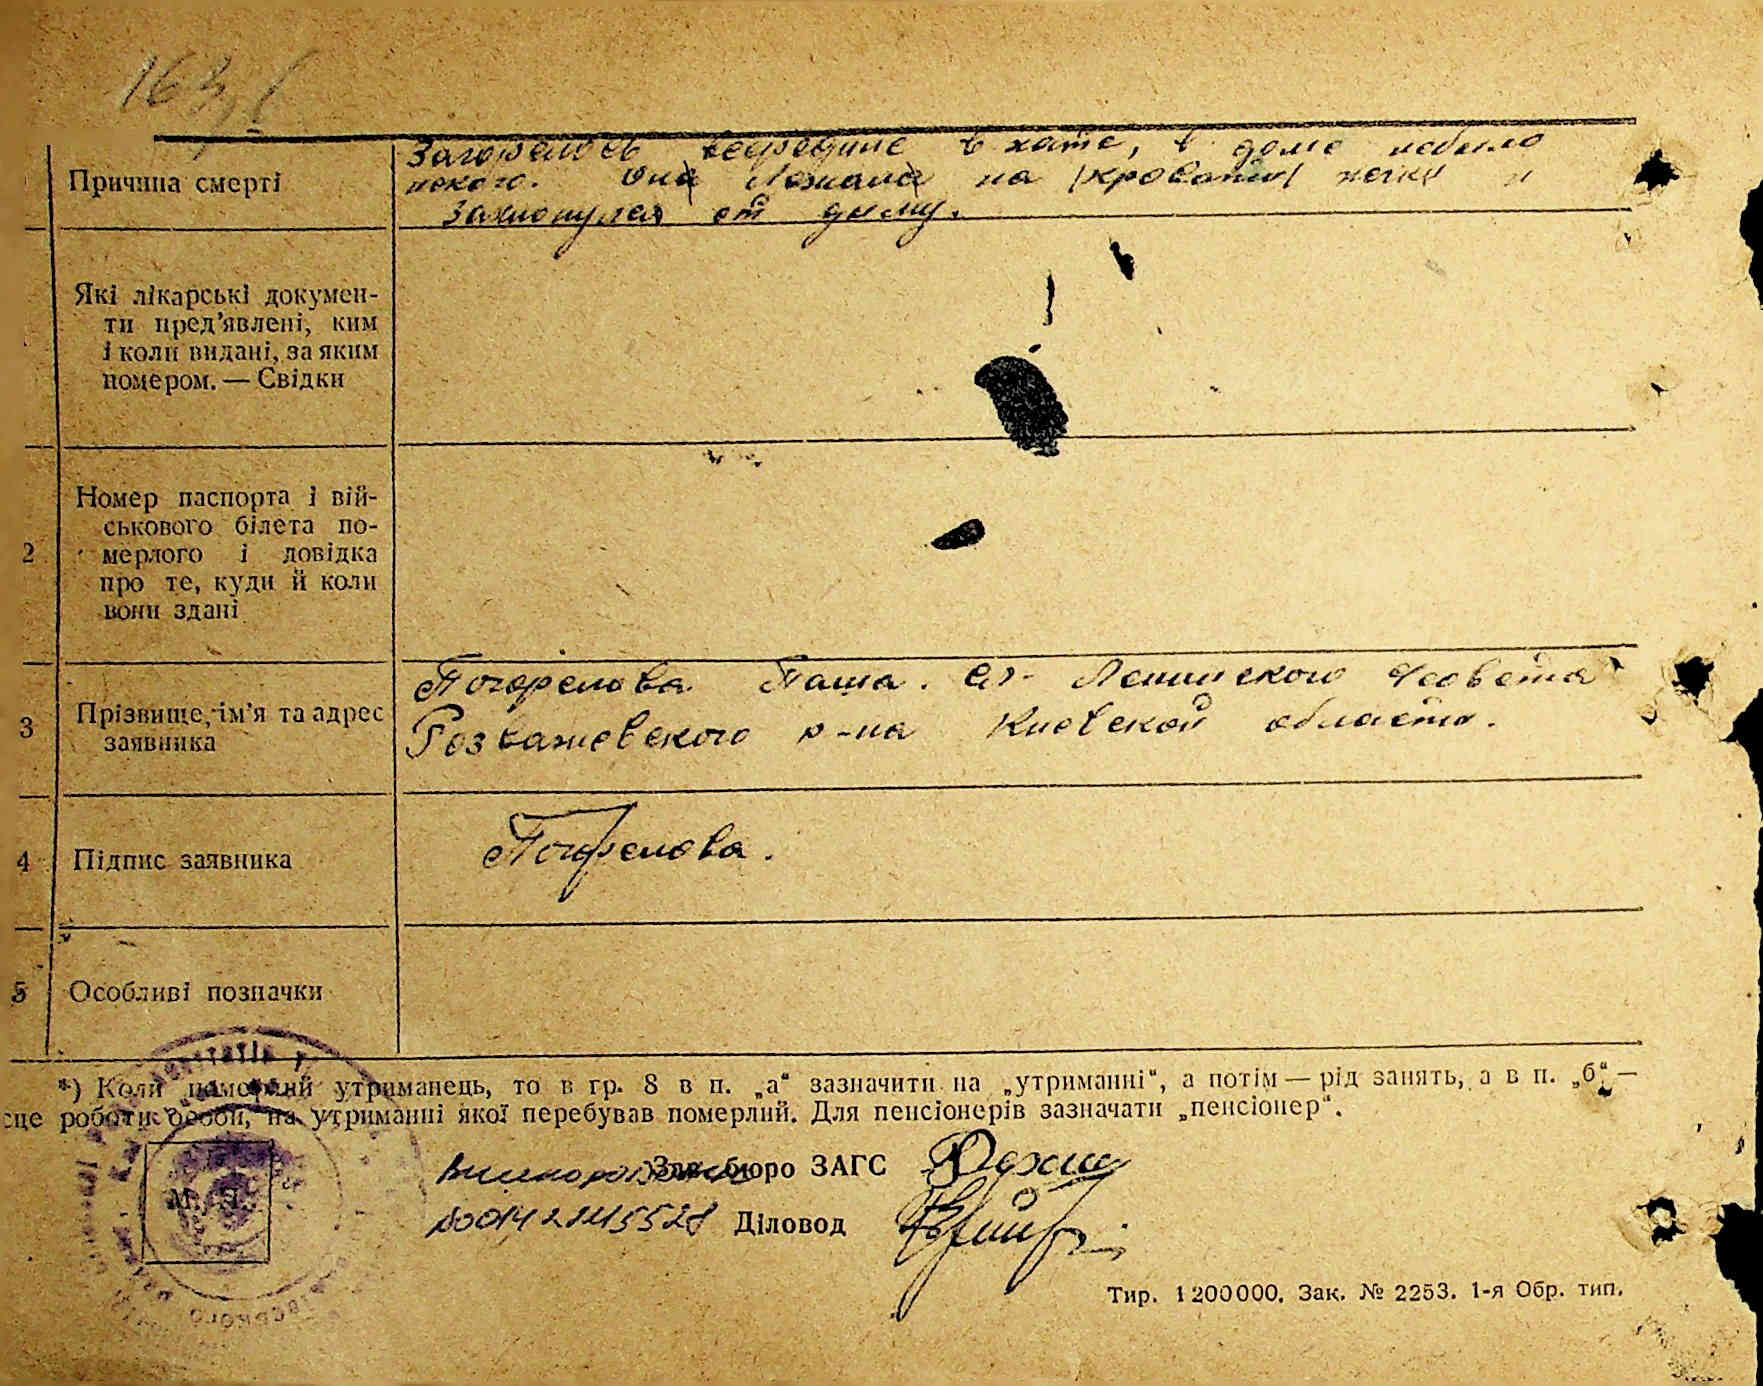 Загорелось всередине в хате, в доме небыло
некого. Она лежала на /кровати/ печке и
Причина смерті
захлопулся от дыму.
Які лікарські докумен-
ти пред’явлені, ким
і коли видані, за яким
номером. — Свідки
Номер паспорта і вій-
ськового білета по-
2 мерлого і довідка
про те, куди й коли
вони здані
Погорелова Паша. Ленинского
3 Прізвище, ім’я та адрес
заявника
Розважевского р-на Киевской области.
4 Підпис заявника Погорелова.
5 Особливі позначки
*) Коли померлий утриманець, то в гр. 8 в п. „а“ зазначити на „утриманні“, а потім — рід занять, а в п. „б“ —
сце роботи особи, на утриманні якої перебував померлий. Для пенсіонерів зазначати „пенсіонер“.
Зав. бюро ЗАГС
Діловод
Тир. 1200000. Зак. № 2253. 1-я Обр. тип.